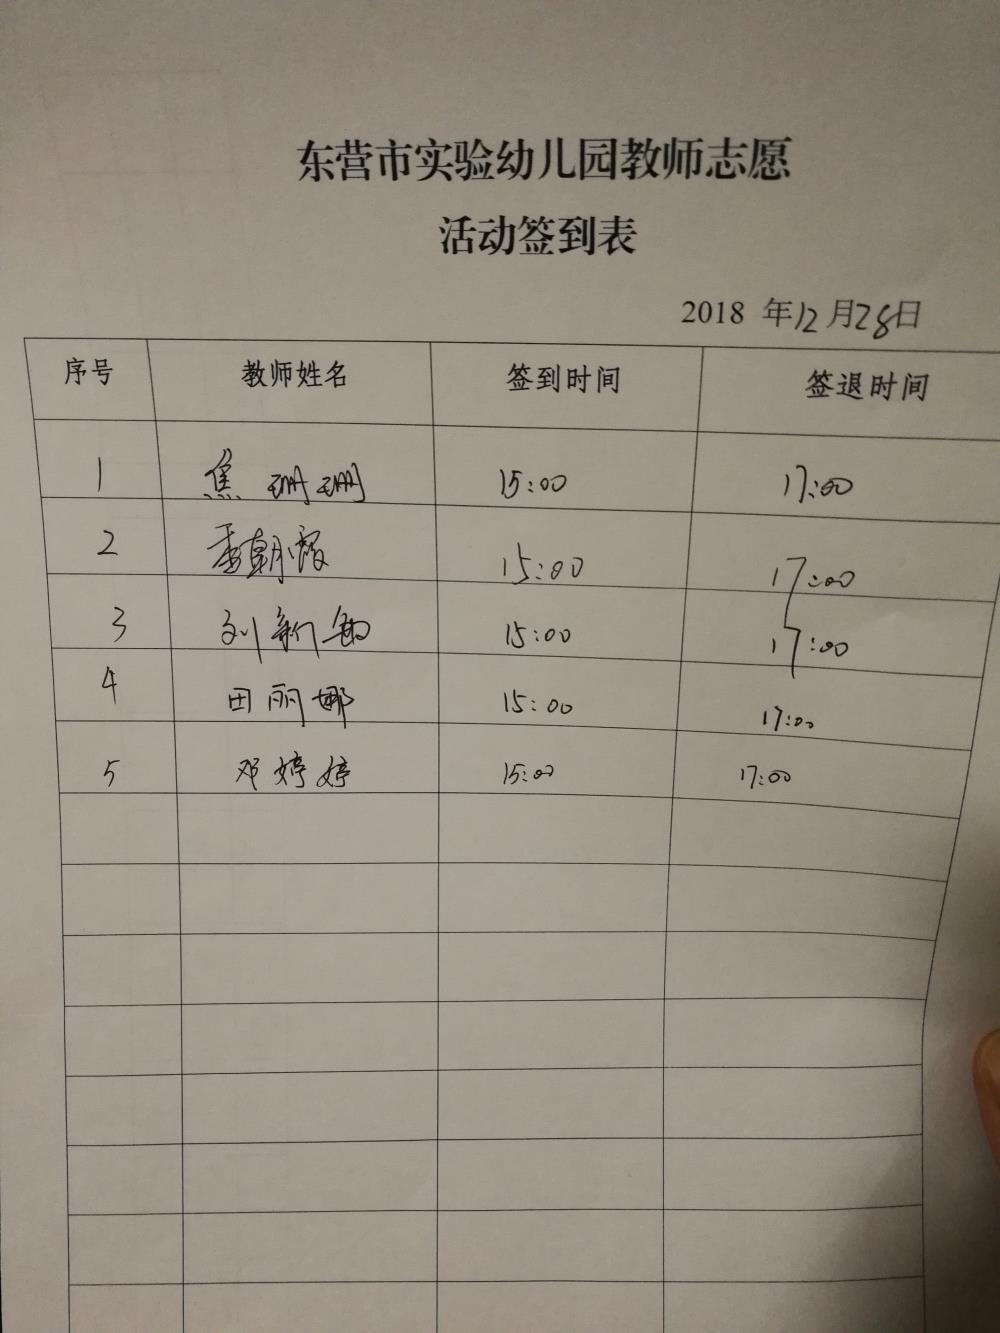 东营市实验幼儿园教师志愿
活动签到表
2018 年12月28日
序号 教师姓名 签到时间 签退时间
1 焦珊珊 15:00 17:00
2 朝霞 15:00 17:00
3 刘新 15:00 17:00
4 田丽娜 15:00 17:00
5 邓婷婷 15:00 17:00